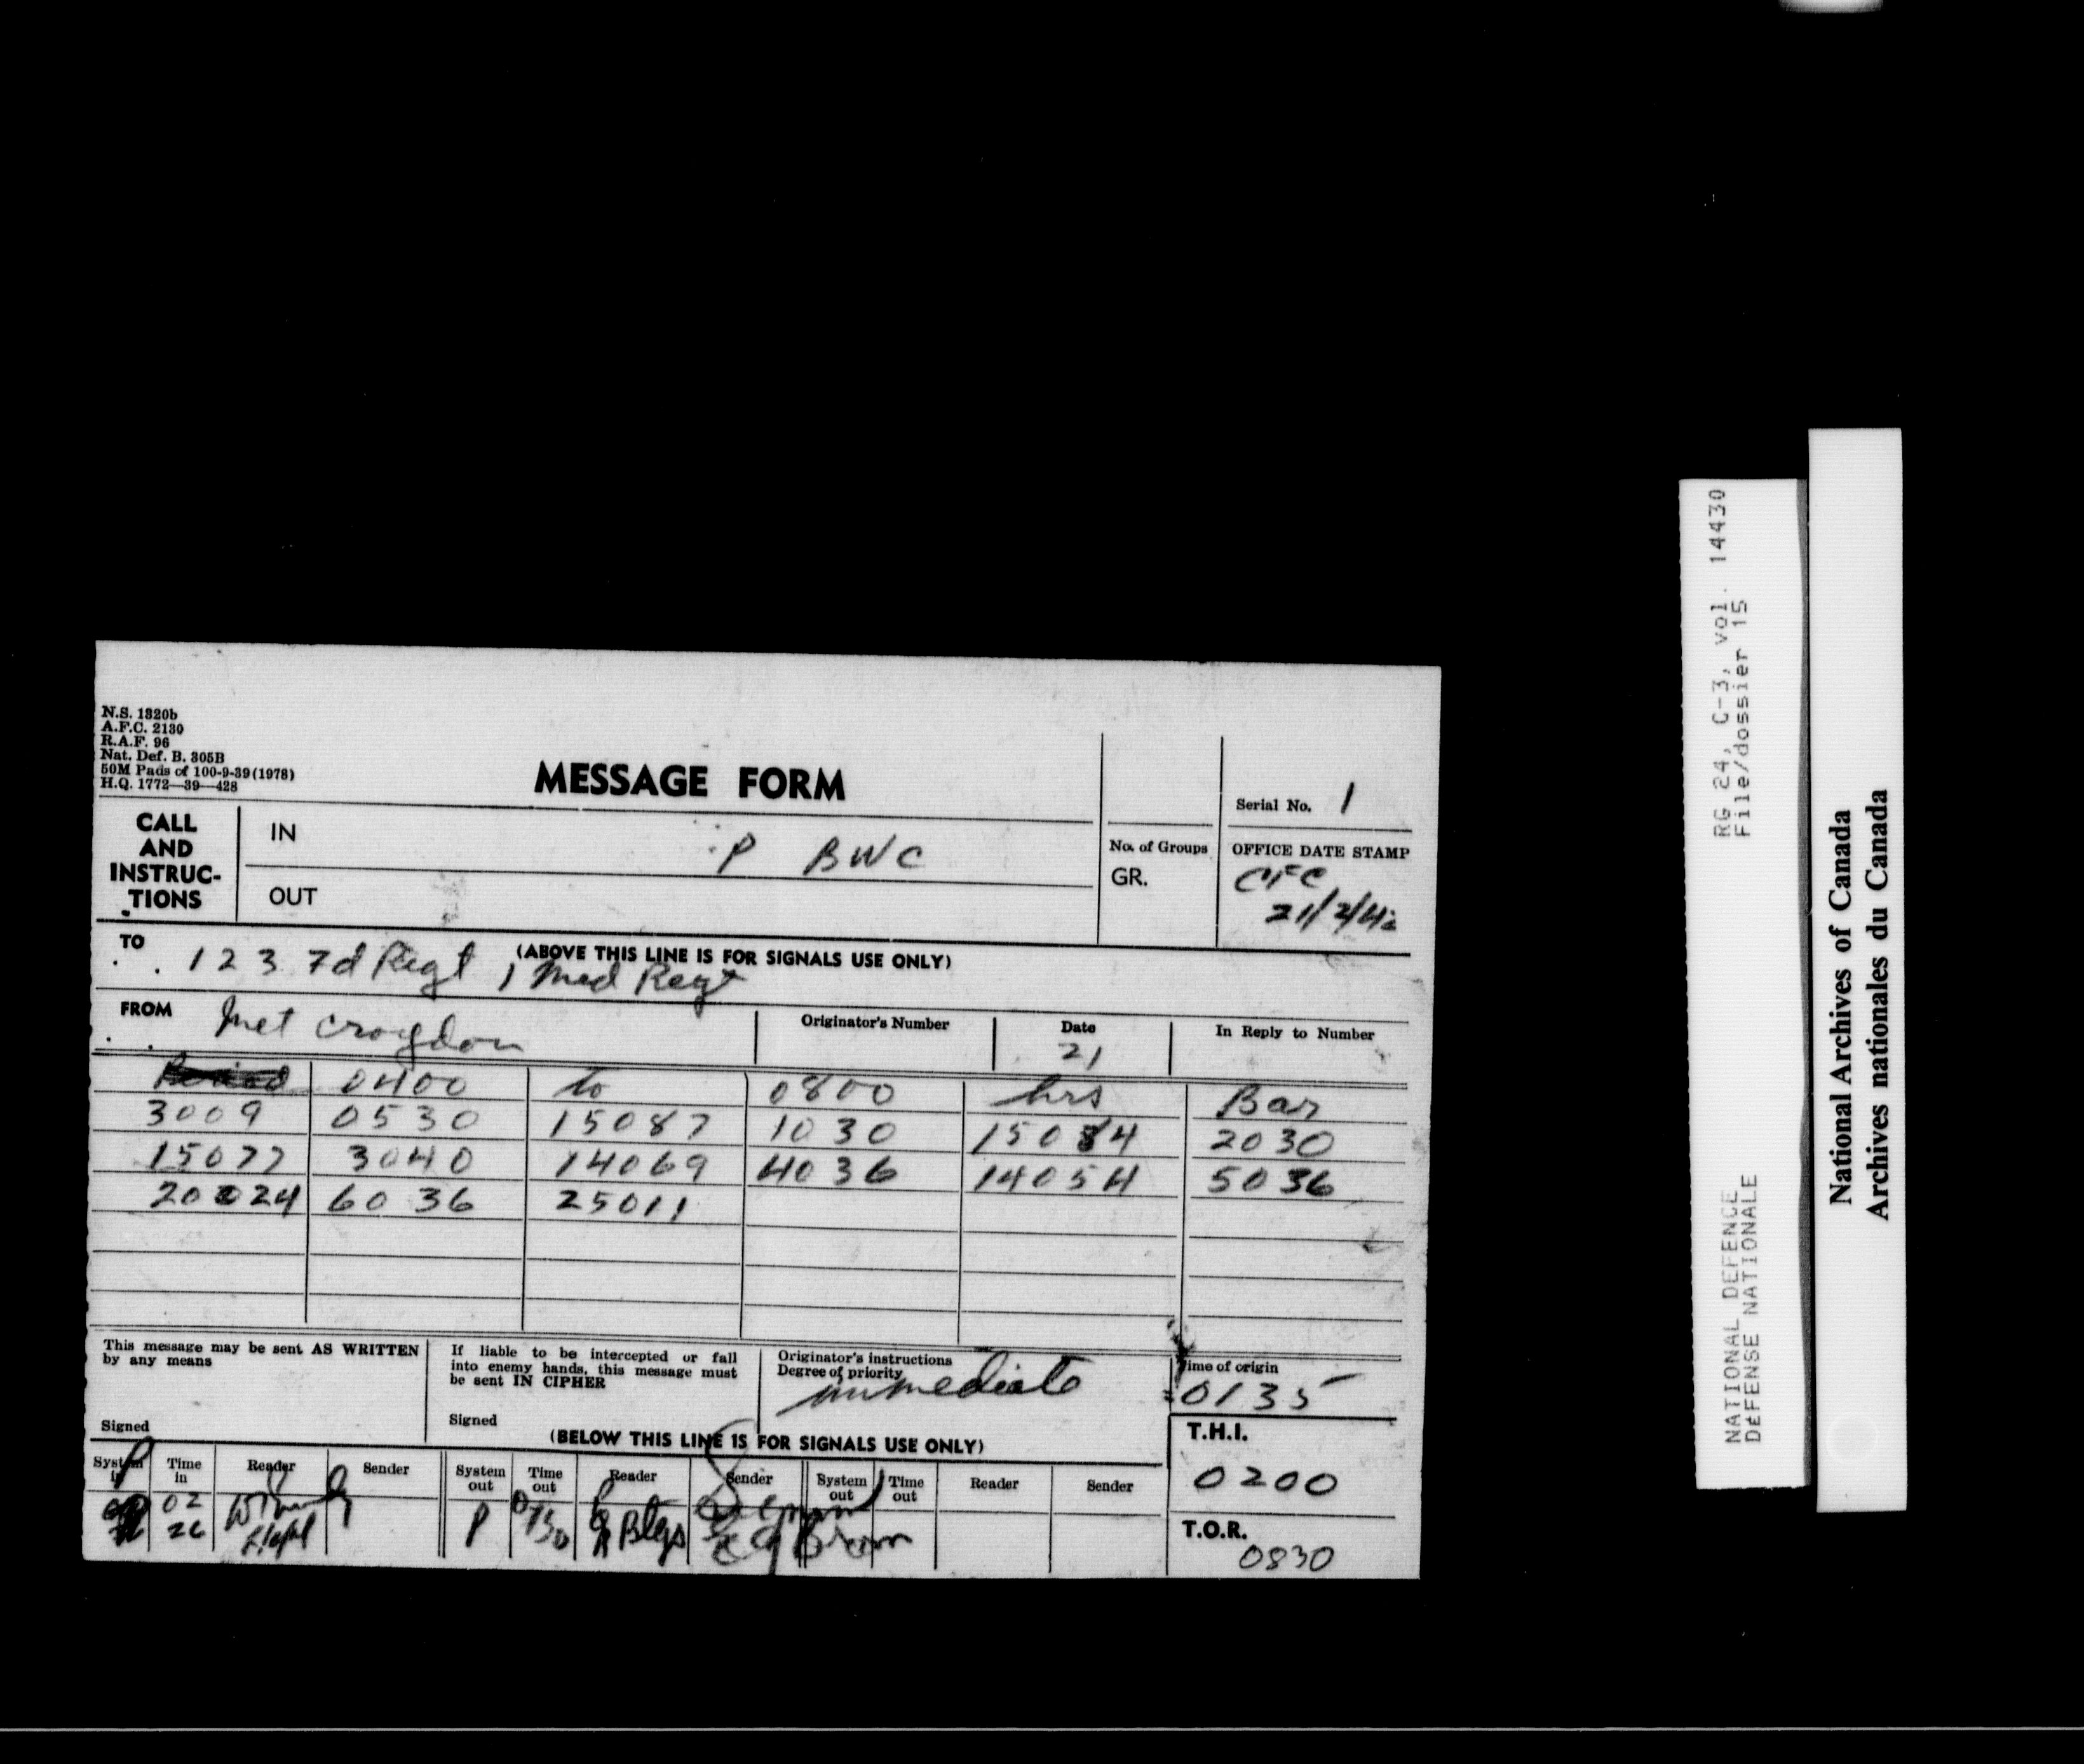 N.S. 1320b
A.F.C. 2130
R.A.F. 96
Nat. Def. B. 305B
50M Pads of 100-9-39 (1978)
H.Q. 1772—39—428
MESSAGE FORM
Serial No. 1
CALL AND INSTRUC-TIONS
IN
P BWC
OUT
No. of Groups
GR.
OFFICE DATE STAMP
CFC
21/2/42
(ABOVE THIS LINE IS FOR SIGNALS USE ONLY)
TO 1 2 3 7d Regt 1 Med Regt
FROM Met Croydon
Originator's Number
Date
21
In Reply to Number
Period 0400 to 0800 hrs Bar
3009 0530 15087 1030 15084 2030
15077 3040 14069 4036 14054 5036
20024 6036 25011
This message may be sent AS WRITTEN
by any means
Signed
If liable to be intercepted or fall
into enemy hands, this message must
be sent IN CIPHER
Signed
Originator's instructions
Degree of priority
immediate
Time of origin
0135
(BELOW THIS LINE IS FOR SIGNALS USE ONLY)
T.H.I.
0200
System in Time in Reader Sender System out Time out Reader Sender System out Time out Reader Sender
02 26
P 0730 Btgs Brown
T.O.R.
0830
RG 24, C-3, vol. 14430
File/dossier 15
NATIONAL DEFENCE
DEFENSE NATIONALE
National Archives of Canada
Archives nationales du Canada